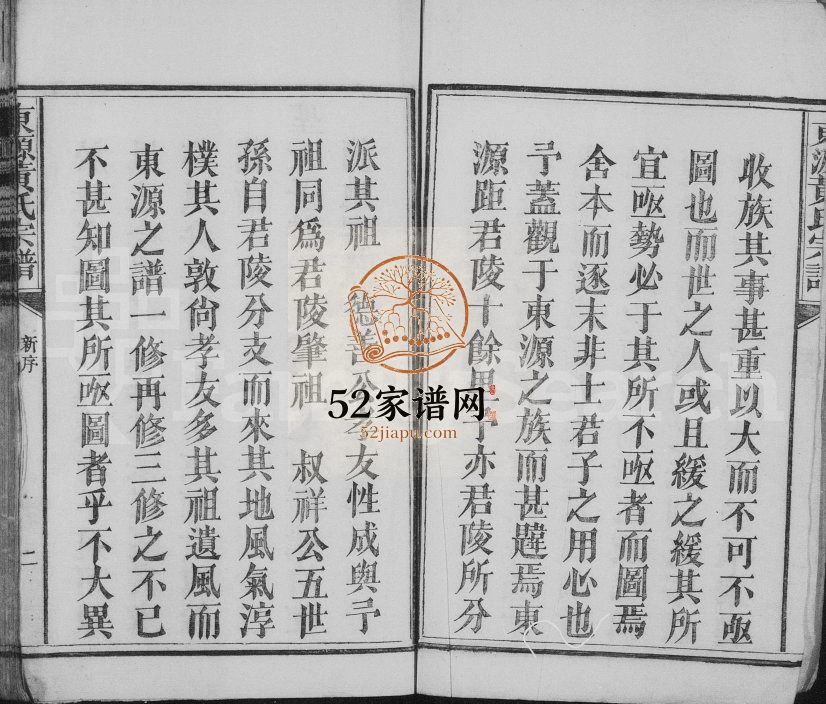 收族其事甚重以大而不可不亟
圖也而世之人或且緩之緩其所
宜亟勢必于其所不亟者而圖焉
舍本而逐末非士君子之用心也
予蓋觀于東源之族而甚韙焉東
源距君陵十餘里予亦君陵所分
派其祖 德善公孝友性成與予
祖同為君陵肇祖 叔祥公五世
孫自君陵分支而來其地風氣淳
樸其人敦尚孝友多其祖遺風而
東源之譜一修再修三修之不已
不甚知圖其所亟圖者乎不大異
東源黃氏宗譜
新序
二
東源黃氏宗譜
52家谱网
52jiapu.com